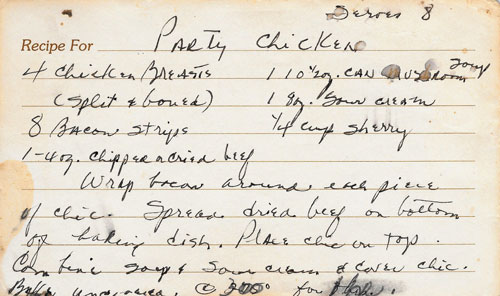 Serves 8
Recipe For Party Chicken
4 Chicken Breasts 1 10½oz. can Mushroom Soup
(split & boned) 1 8oz. Sour cream
8 Bacon Strips ¼ cup sherry
1-4oz. chipped or dried beef
Wrap bacon around each piece
of chic. Spread dried beef on bottom
of baking dish. Place chic on top.
Combine soup & sour cream & cover chic.
Bake uncovered @ for